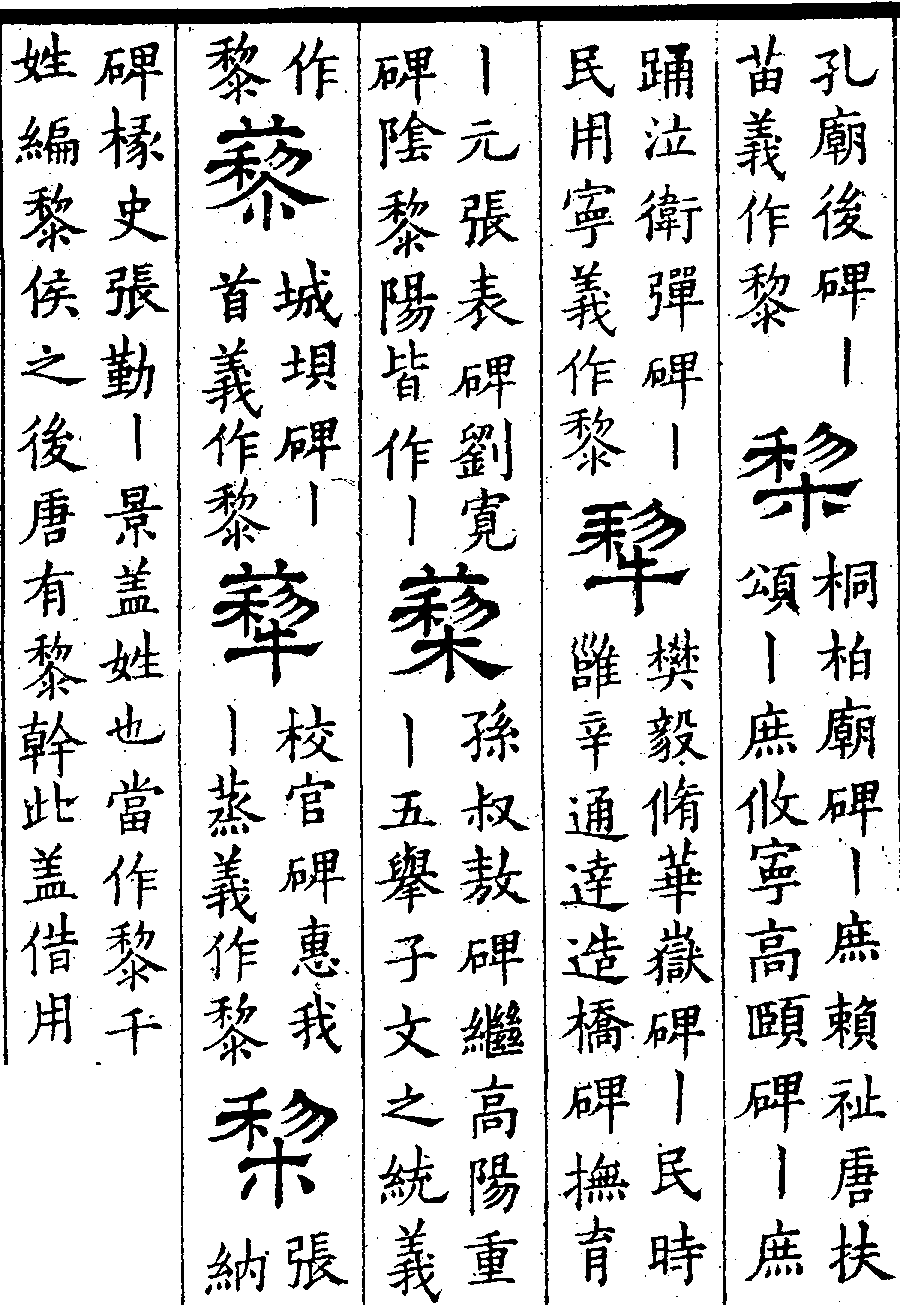 孔廟後碑丨
苗義作黎
棃
桐柏廟碑丨庶賴祉唐扶
頌丨庶攸寧高頤碑丨庶
踊泣衛彈碑丨
民用寧義作黎
犂
樊毅脩華嶽碑丨民時
雝辛通達造橋碑撫育
丨元張表碑劉寬
碑陰黎陽皆作丨
蔾
孫叔敖碑繼高陽重
丨五舉子文之統義
作
黎
藜
城垻碑丨
首義作黎
校官碑惠我
丨蒸義作黎
棃
張
納
碑椽史張勤丨景盖姓也當作黎千
姓編黎侯之後唐有黎幹此盖借用